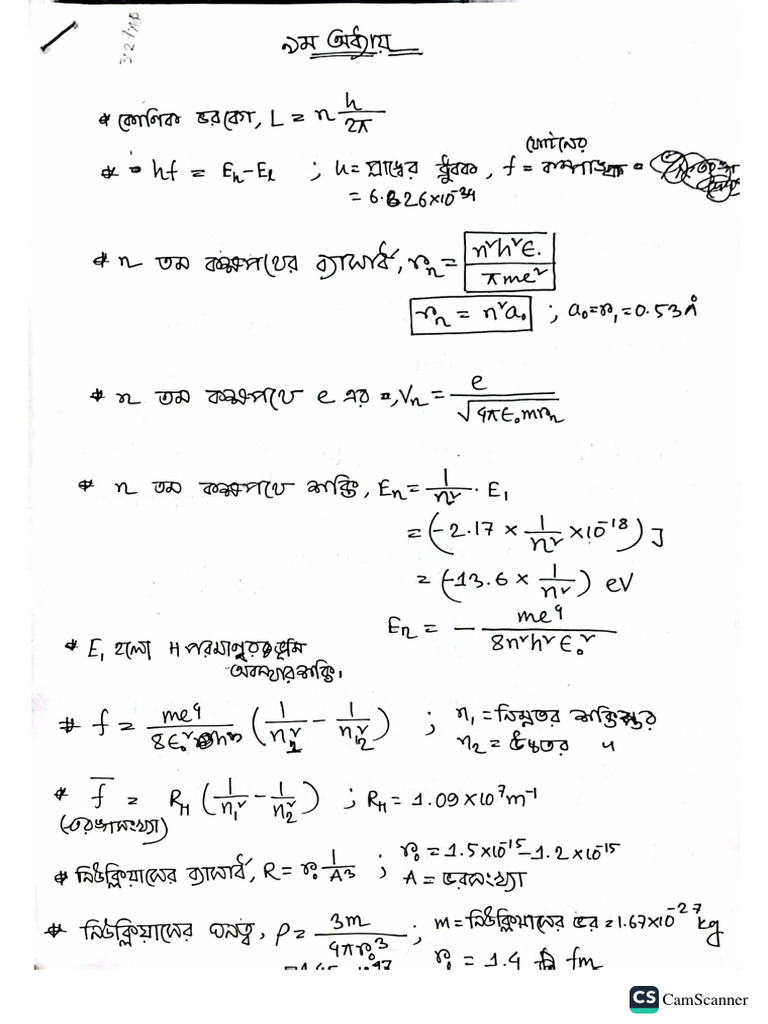 ৯ম অধ্যায়
* কৌণিক ভরবেগ, L = n h/2π
ফোটনের
* hf = Eₕ - Eₗ ; h = প্লাঙ্কের ধ্রুবক, f = কম্পাঙ্ক
= 6.626×10⁻³⁴
* n তম কক্ষপথের ব্যাসার্ধ, rₙ = n²h²ε₀/πme²
rₙ = n²a₀ ; a₀=r₁=0.53Å
* n তম কক্ষপথে e এর, Vₙ = e/√4πε₀mrₙ
* n তম কক্ষপথে শক্তি, Eₙ = 1/n² · E₁
= (-2.17 × 1/n² ×10⁻¹⁸) J
= (-13.6 × 1/n²) eV
Eₙ = - me⁴/8n²h²ε₀²
* E₁ হলো H পরমাণুর ভূমি
অবস্থার শক্তি।
* f = me⁴/8ε₀² (1/n₁² - 1/n₂²) ; n₁ = নিম্নতর শক্তিস্তর
n₂ = উচ্চতর "
* f̅ = R_H (1/n₁² - 1/n₂²) ; R_H = 1.09×10⁷m⁻¹
(তরঙ্গসংখ্যা)
* নিউক্লিয়াসের ব্যাসার্ধ, R = r₀ A^1/3 ; r₀ = 1.5×10⁻¹⁵-1.2×10⁻¹⁵
A = ভরসংখ্যা
* নিউক্লিয়াসের ঘনত্ব, ρ = 3m/4πr₀³ ; m = নিউক্লিয়াসের ভর = 1.67×10⁻²⁷ kg
r₀ = 1.4 fm
CS CamScanner